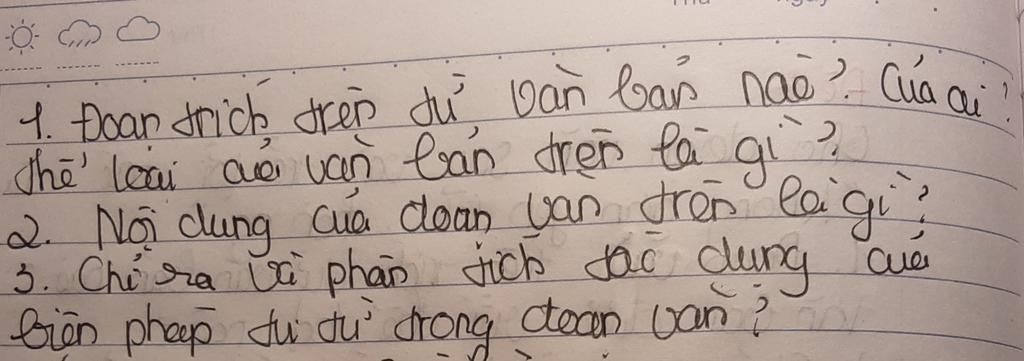 1. Đoạn trích trên từ văn bản nào? Của ai?
thể loại của văn bản trên là gì?
2. Nội dung của đoạn văn trên là gì?
3. Chỉ ra và phân tích tác dụng của
biện pháp tu từ trong đoạn văn?